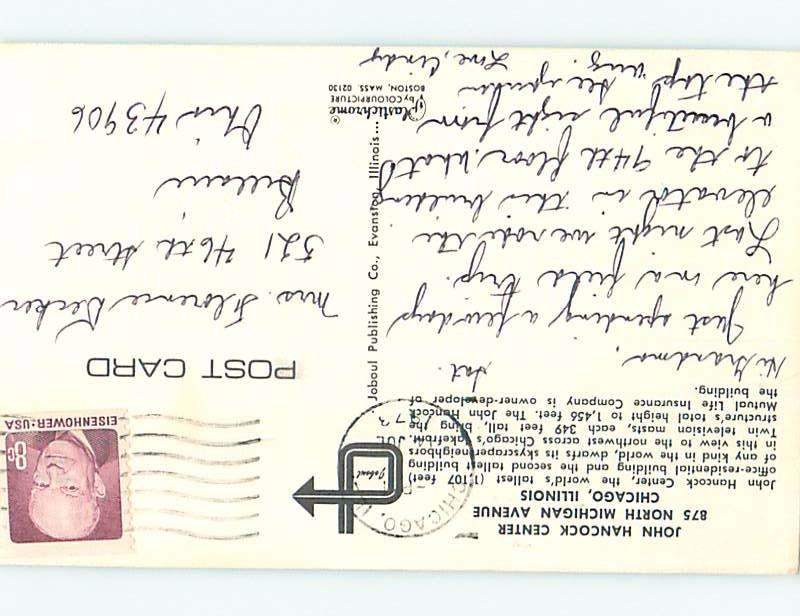 JOHN HANCOCK CENTER
875 NORTH MICHIGAN AVENUE
CHICAGO, ILLINOIS
John Hancock, Center, the world's tallest (1,107 feet)
office-residential building and the second tallest building
of any kind in the world, dwarfs its skyscraper neighbors
in this view to the northwest across Chicago's lakefront.
Twin television masts, each 349 feet tall, bring the
structure's total height to 1,456 feet. The John Hancock
Mutual Life Insurance Company is owner-developer of
the building.
Sat.
Hi Grandma,
Just spending a few days
here on a field trip.
Last night we rode the
elevator in this building
to the 94th floor. What
a beautiful sight from
the top
See you
Love, Cindy
Joboul
CHICAGO, IL
JUL
1973
EISENHOWER·USA
8c
POST CARD
Mrs. Florence Decker
521 46th Street
Bellaire
Ohio 43906
Joboul Publishing Co., Evanston, Illinois...
Plastichrome ®
by COLOURPICTURE
BOSTON, MASS. 02130